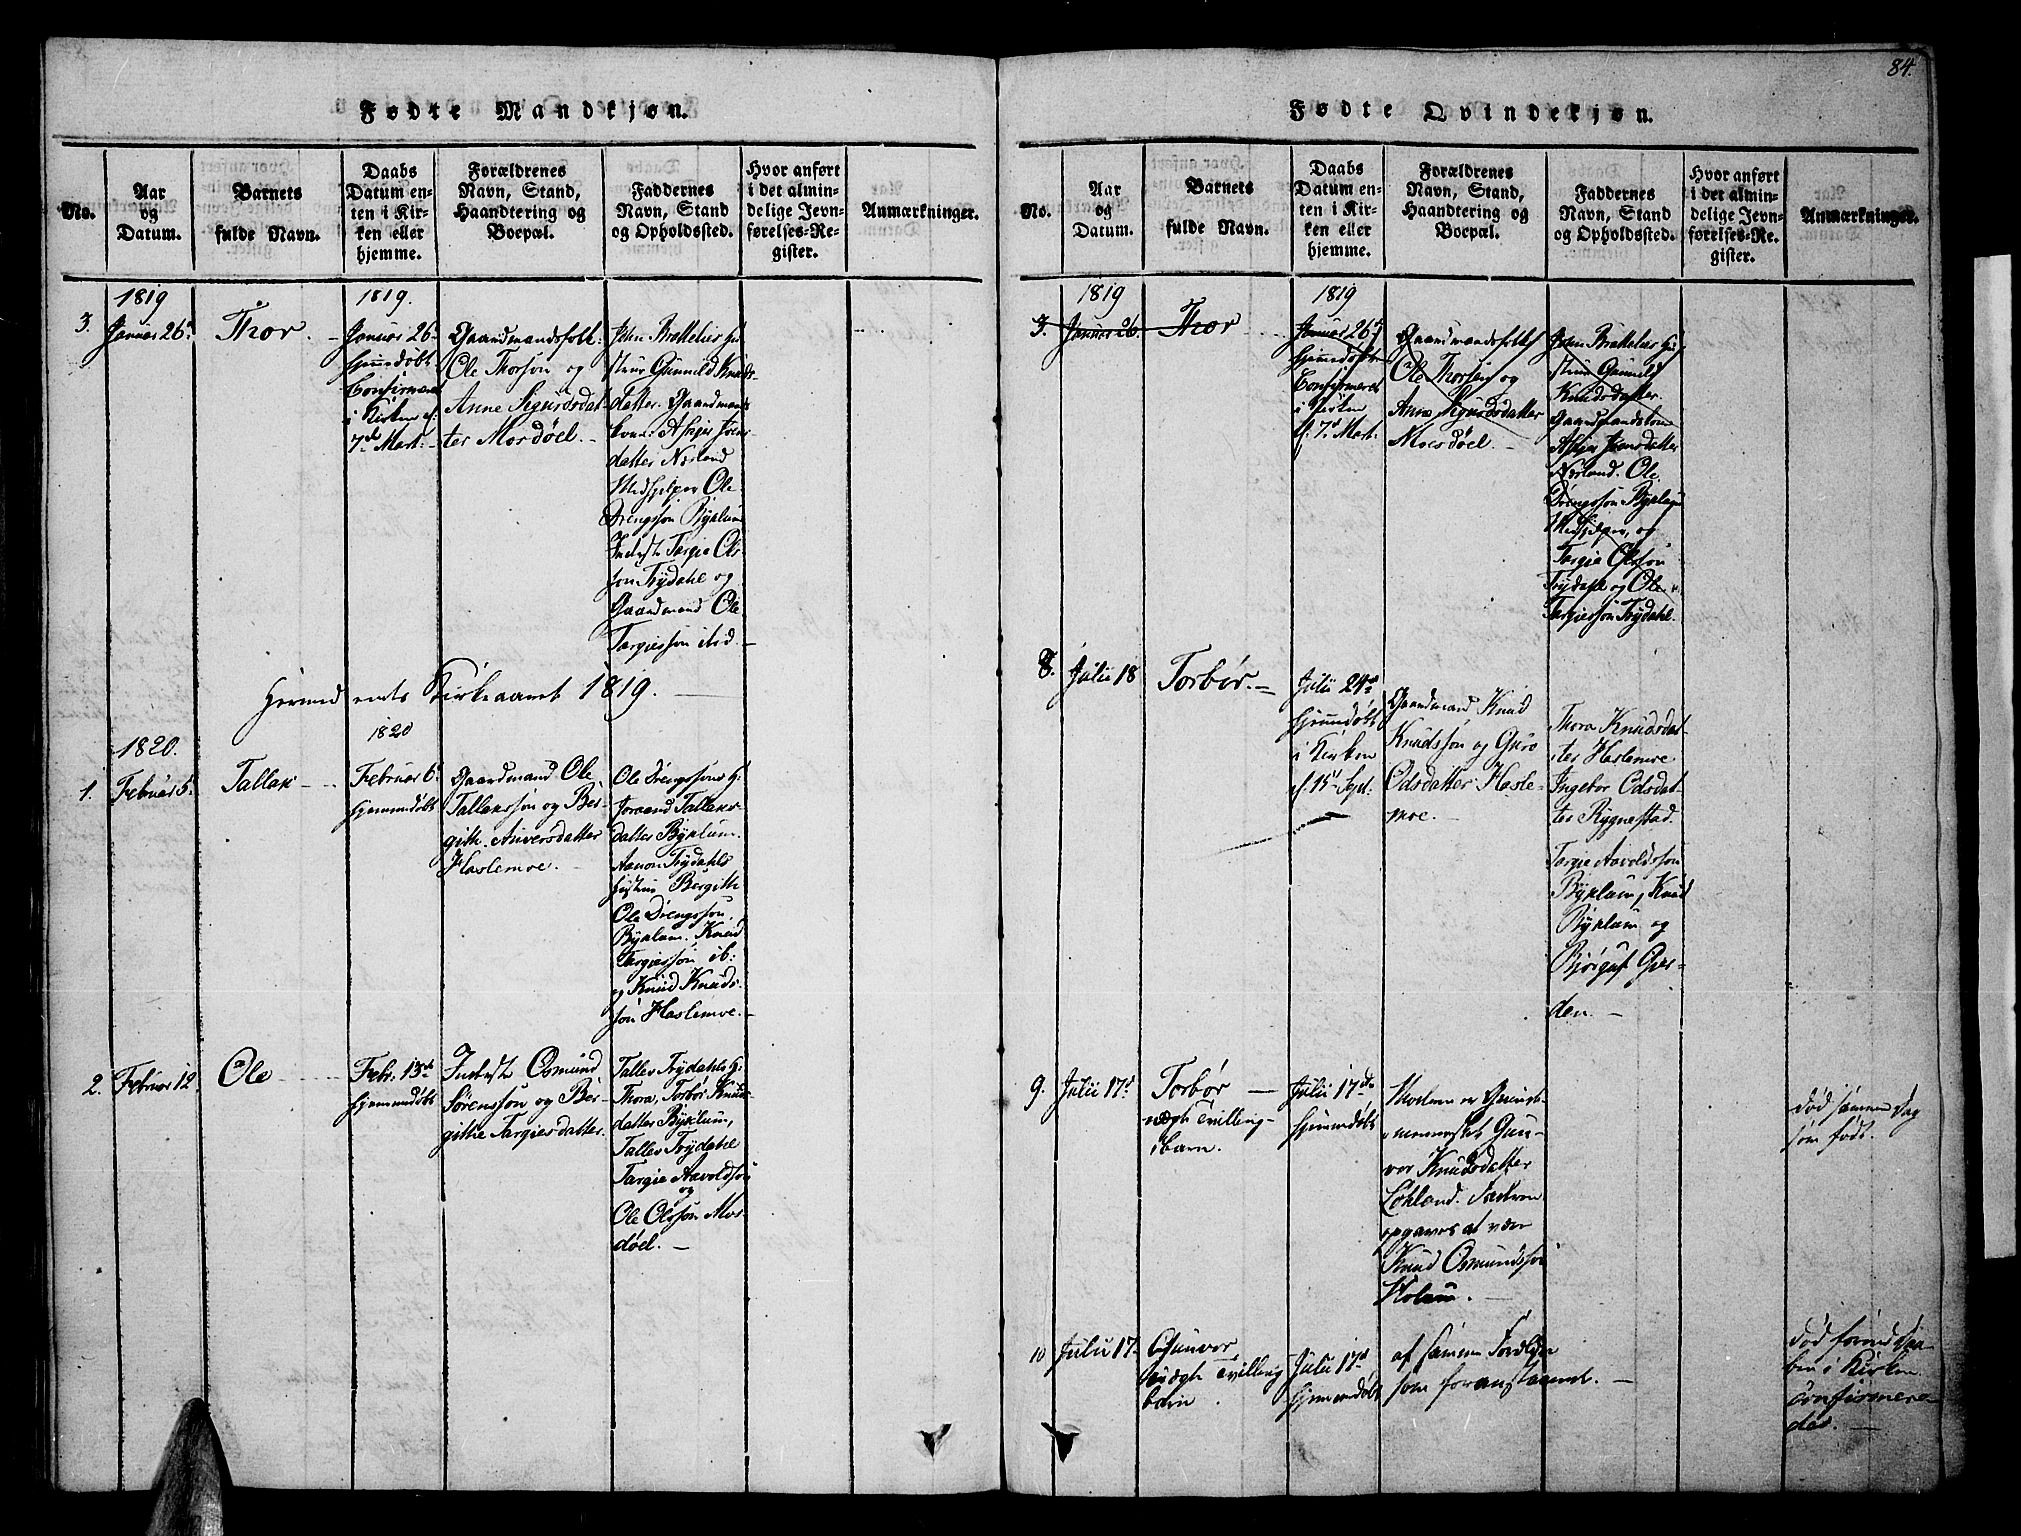 84.
Fødte Mandkjøn.
No.
Aar
og
Datum.
Barnets
fulde Navn.
Daabs
Datum en-
ten i Kir-
ken eller
hjemme.
Forældrenes
Navn, Stand,
Haandtering og
Boepæl.
Faddernes
Navn, Stand
og Opholdssted.
Hvor anført
i det almin-
delige Jevn-
førelses-Re-
gister.
Anmærkninger.
1819
1819.
3.
Januar 26d
Thor.
Januar 26d
hjemedøbt
Confirmeret
i Kirken d.
7de Mart:
Gaardmandsfolk:
Ole Thorsøn og
Anne Sigurdsdat-
ter Mordøel.
John Brattelies Hu-
strue Gunneld Knuds-
datter. Gaardmands
kone: Asgier Jons-
datter Norland
Medhjelper Ole
Drengssøn Byklum
Inderste Targie Ols-
søn Trydahl og
Gaardmand Ole
Targiessøn ibid.
Hermed endes Kirkeaaret 1819.
1820.
1820
1.
Februar 5.
Tallak
Februar 6.
hjemmedøbt
Gaardmand Ole
Tallakssøn og Ber-
gith. Anversdatter
Haslemoe.
Ole Drengssøns H:
Joraand Tallaks-
datter Byklum.
Aanon Trydahls
hustru Bergith
Ole Drengssøn,
Byklum. Knud
Targiessøn ib:
og Knud Knuds-
søn Haslemoe.
2.
Februar 12.
Ole
Febr. 13de
hjemmedøbt
Inderste Osmund
Sørenssøn og Ber-
gitthe Targiesdatter.
Talles Trydahls H:
Thora, Torbør Knuds-
datter Byklum,
Talles Trydahl
Targie Aavoldsøn
og
Ole Olssøn Mor-
døel.
Fødte Qvindekjøn.
No.
Aar
og
Datum.
Barnets
fulde Navn.
Daabs
Datum en-
ten i Kir-
ken eller
hjemme.
Forældrenes
Navn, Stand,
Haandtering og
Boepæl.
Faddernes
Navn, Stand
og Opholdssted.
Hvor anført
i det almin-
delige Jevn-
førelses-Re-
gister.
Anmærkninger.
1819
1819
3.
Januar 26.
Thor
Januar 26d
hjemedøbt
Confirmeret
i Kirken
d. 7de Mart:
Gaardmandsfolk
Ole Thorsøn og
Anne Sigurdsdatter
Mordøel.
John Brattelies Hu-
strue Gunneld
Knudsdatter
Gaardmandskone
Asgier Jonsdatter
Norland. Ole
Drengssøn Byklum
Medhjelper, og
Targie Olssøn
Trydahl og Ole
Targiessøn Trydahl.
8.
Julii 18
Torbør.
Julii 24de
hjemedøbt
i Kirken
d. 15d Sept.
Gaardmand Knud
Knudssøn og Guro
Odsdatter Hasle-
moe.
Thora Knudsdat-
ter Haslemoe
Ingebor Odsdat-
ter Rygnestad.
Targie Aavoldssøn
Byklum, Knud
Byklum og
Bjørguf Gjer-
den.
9.
Julii 17d
Torbør
uægte tvilling-
barn.
Julii 17de
hjemmedøbt
Moderen er Qvinde-
mennesket Gun-
vor Knudsdatter
Løkland. Faderen
opgaves at være
Knud Osmundssøn
Holum.
død samme dag
som født.
10
Julii 17
Gunvor
uægte tvilling
barn.
Julii 17d
hjemmedøbt
af samme Forældre
som foranstaaend.
død forend Daa-
ben i Kirken
confirmere-
des.